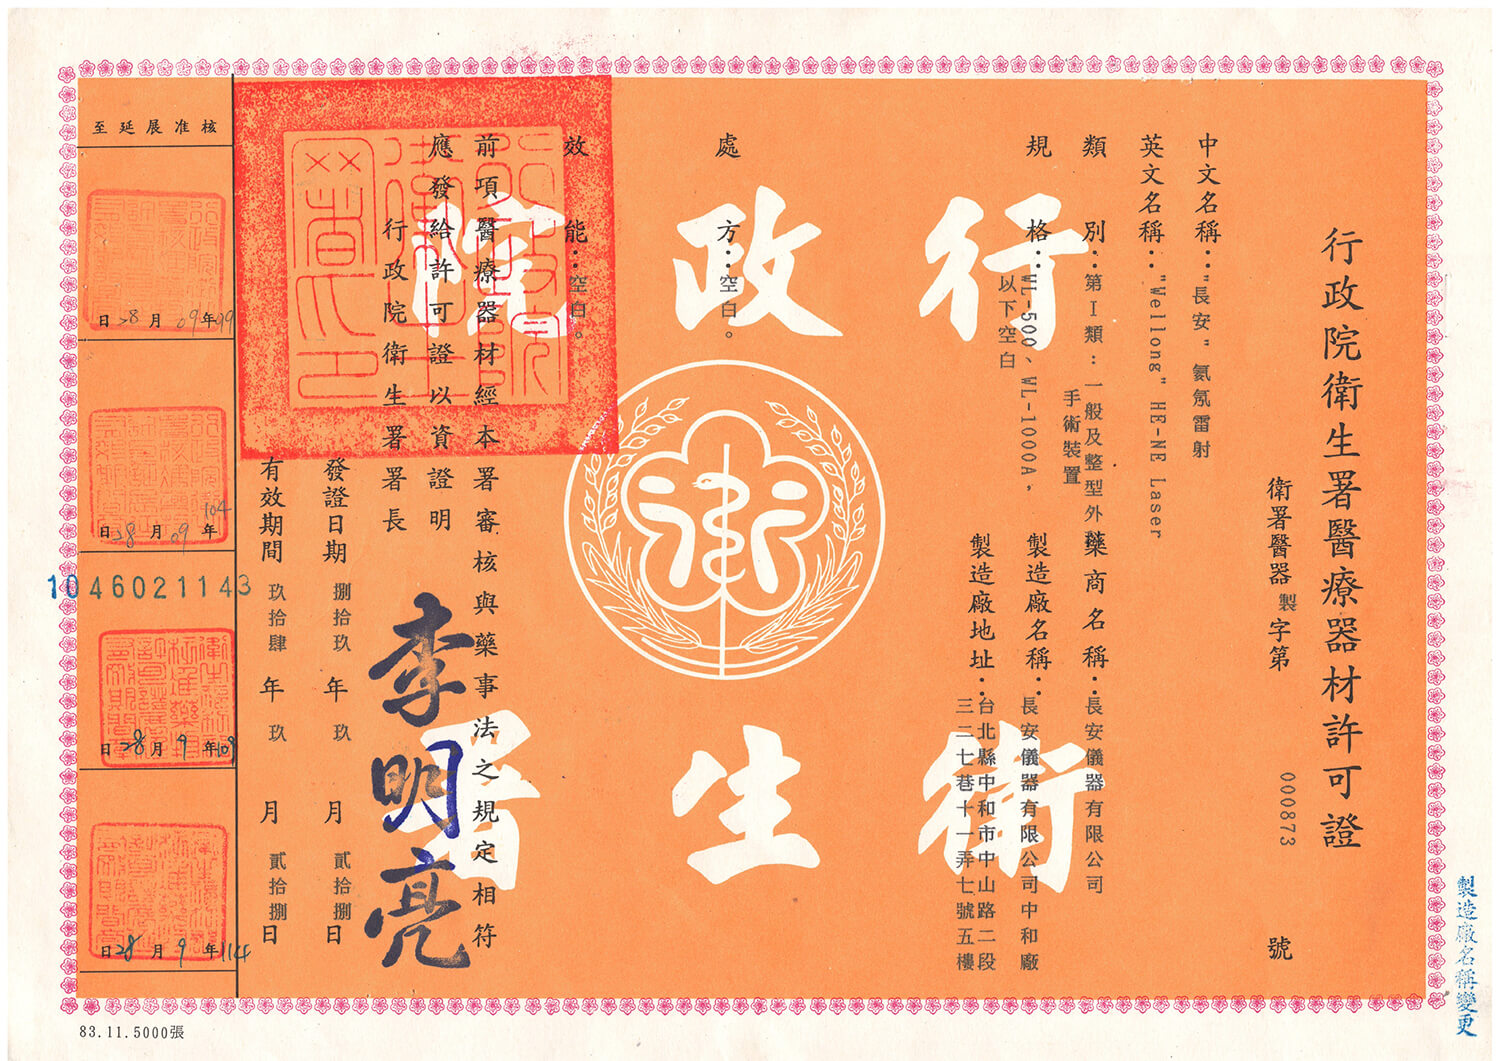 行政院衛生署醫療器材許可證
衛署醫器製字第 000873 號
中文名稱："長安" 氦氖雷射
英文名稱："Wellong" HE-NE Laser
類別：第I類：一般及整型外科
手術裝置
規格：WL-500、WL-1000A,
以下空白
處方：空白。
效能：空白。
藥商名稱：長安儀器有限公司
製造廠名稱：長安儀器有限公司中和廠
製造廠地址：台北縣中和市中山路二段
三二七巷十一弄七號五樓
前項醫療器材經本署審核與藥事法之規定相符
應發給許可證以資證明
行政院衛生署署長
李明亮
發證日期 捌拾玖年玖月貳拾捌日
有效期間 玖拾肆年玖月貳拾捌日
行政院
衛生署
衛
核准展延至
99年09月28日
104年09月28日
1046021143
109年9月28日
114年9月28日
製造廠名稱變更
83.11.5000張